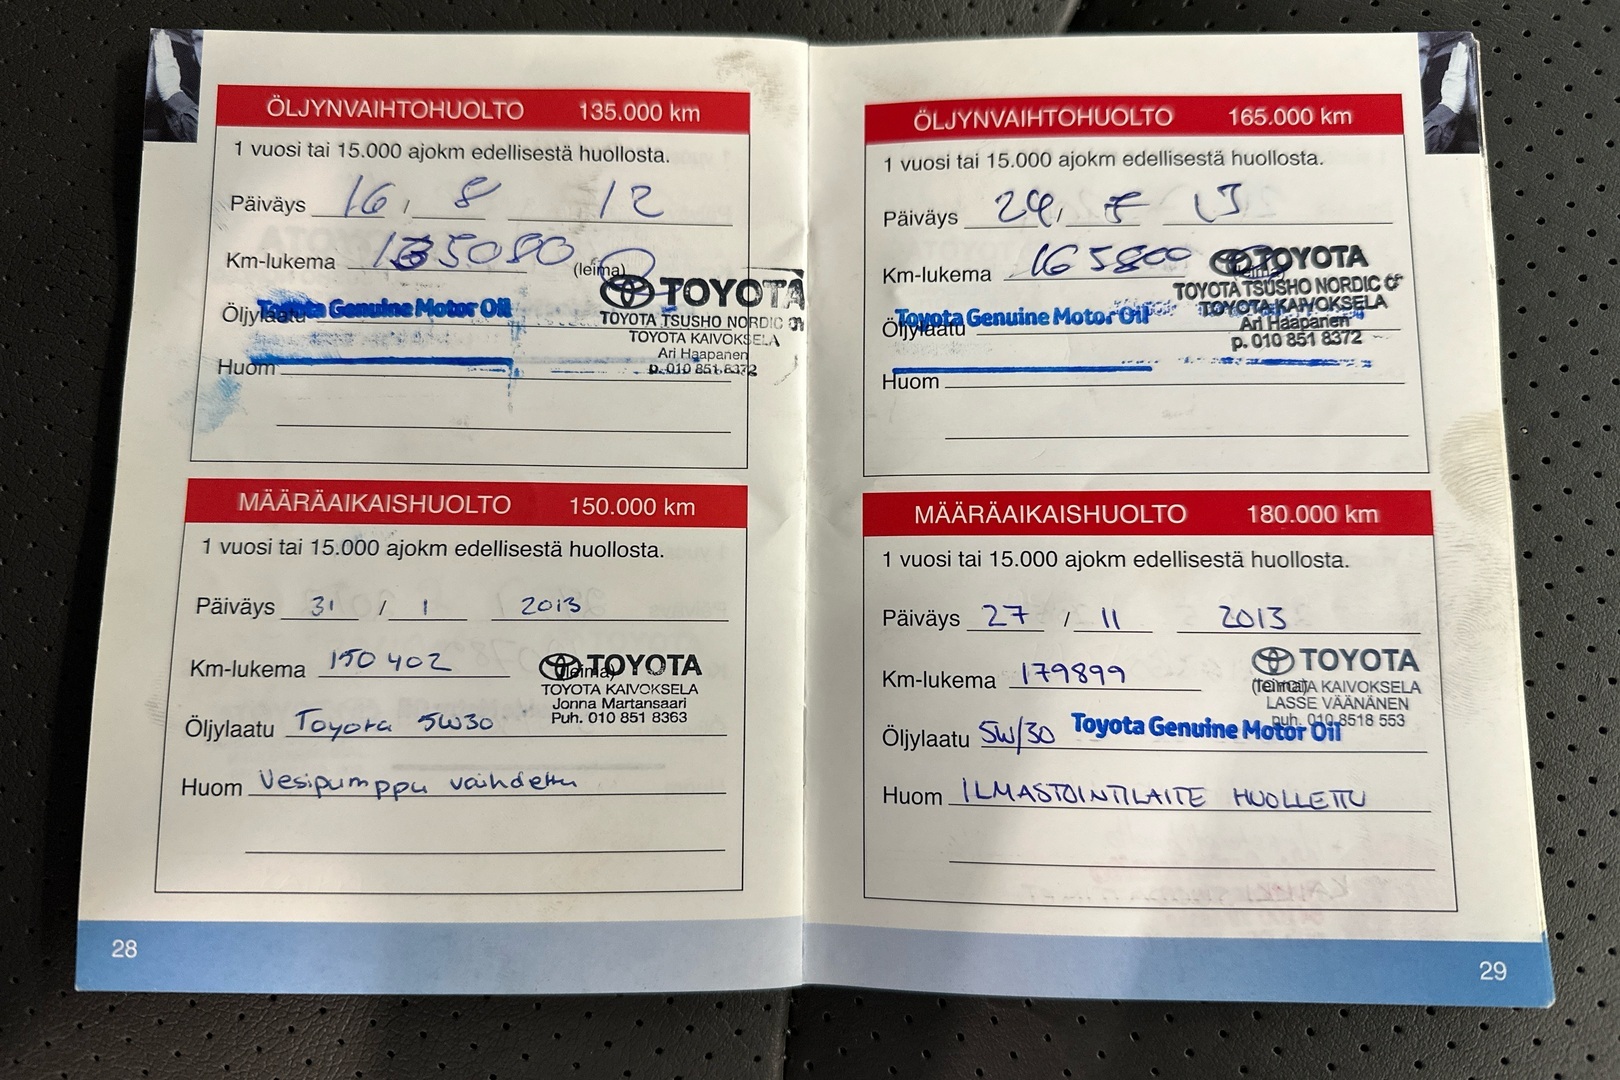 ÖLJYNVAIHTOHUOLTO 135.000 km
1 vuosi tai 15.000 ajokm edellisestä huollosta.
Päiväys 16 / 8 12
Km-lukema 135080 (leima)
TOYOTA
Öljylaatu Toyota Genuine Motor Oil
TOYOTA TSUSHO NORDIC OY
TOYOTA KAIVOKSELA
Ari Haapanen
p. 010 851 8372
Huom
MÄÄRÄAIKAISHUOLTO 150.000 km
1 vuosi tai 15.000 ajokm edellisestä huollosta.
Päiväys 31 / 1 2013
Km-lukema 150402 (leima)
TOYOTA
TOYOTA KAIVOKSELA
Jonna Martansaari
Puh. 010 851 8363
Öljylaatu Toyota 5W30
Huom Vesipumppu vaihdettu
28
ÖLJYNVAIHTOHUOLTO 165.000 km
1 vuosi tai 15.000 ajokm edellisestä huollosta.
Päiväys 24 / 13
Km-lukema 165800
TOYOTA
TOYOTA TSUSHO NORDIC OY
TOYOTA KAIVOKSELA
Ari Haapanen
p. 010 851 8372
Öljylaatu Toyota Genuine Motor Oil
Huom
MÄÄRÄAIKAISHUOLTO 180.000 km
1 vuosi tai 15.000 ajokm edellisestä huollosta.
Päiväys 27 / 11 2013
Km-lukema 179899 (leima)
TOYOTA
TOYOTA KAIVOKSELA
LASSE VÄÄNÄNEN
puh. 010 8518 553
Öljylaatu 5W/30 Toyota Genuine Motor Oil
Huom ILMASTOINTILAITE HUOLLETTU
29